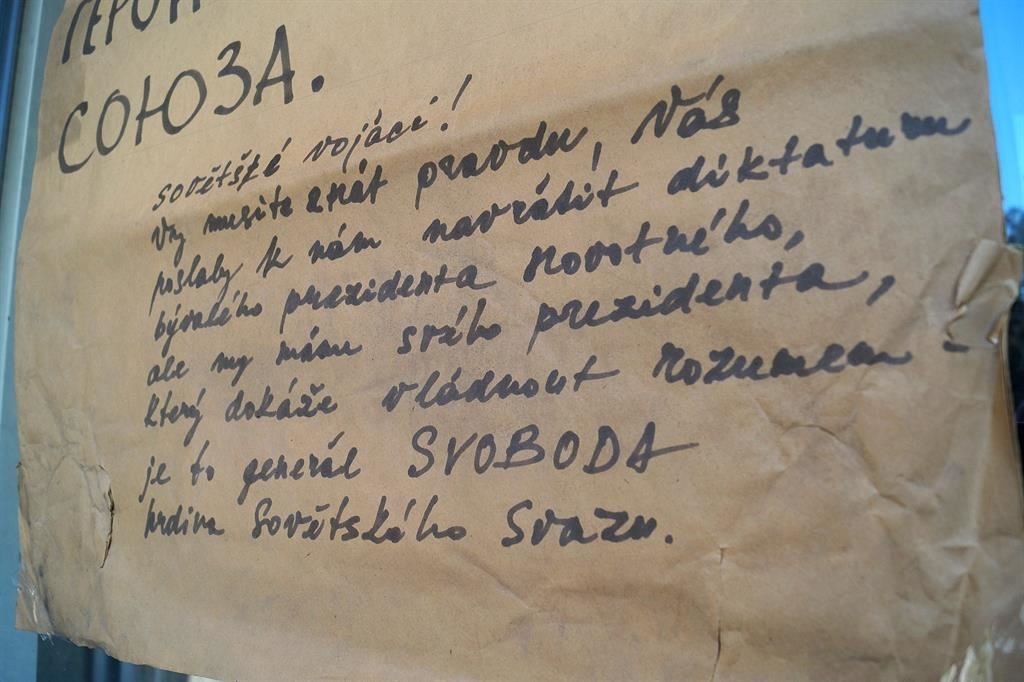 ГЕРОЯ
СОЮЗА.
sovětšté vojáci!
Vy musíte znát pravdu, Vás
poslaby k nám navrátit diktaturu
bývalého prezidenta Novotného,
ale my mámu svého prezidenta,
který dokáže vládnout rozumem -
je to generál SVOBODA
hrdina Sovětského Svazu.